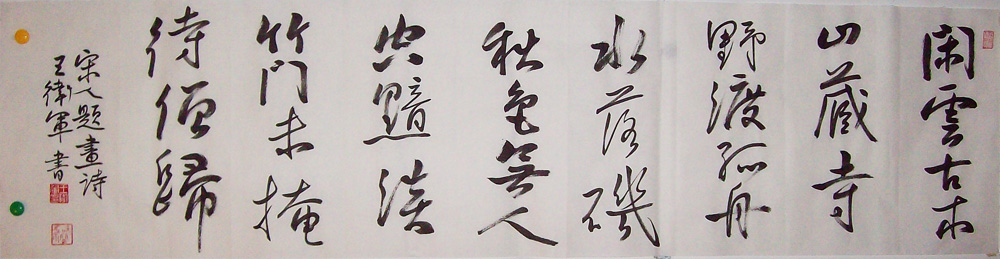 閑雲古木
山藏寺
野渡孤舟
水落磯
秋色無人
空黯淡
竹門未掩
待僧歸
宋人題畫詩
王衛軍書